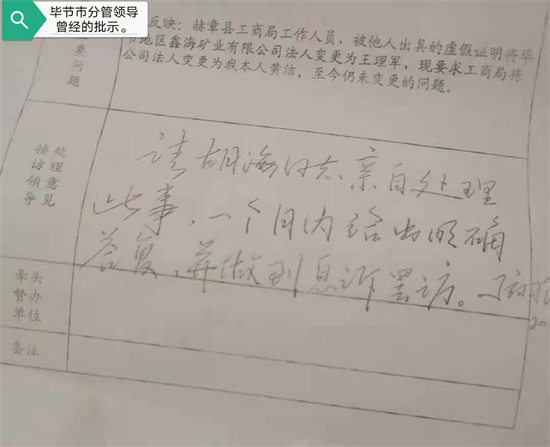 毕节市分管领导
曾经的批示。
反映：赫章县工商局工作人员，被他人出具的虚假证明将毕
节地区鑫海矿业有限公司法人变更为王理军，现要求工商局将
公司法人变更为我本人黄洁，至今仍未变更的问题。
要
问
题
接 处
访 理
领 意
导 见
请胡海同志亲自处理
此事，一个月内给出明确
答复，并做到息诉罢访。
牵头
督办
单位
备注